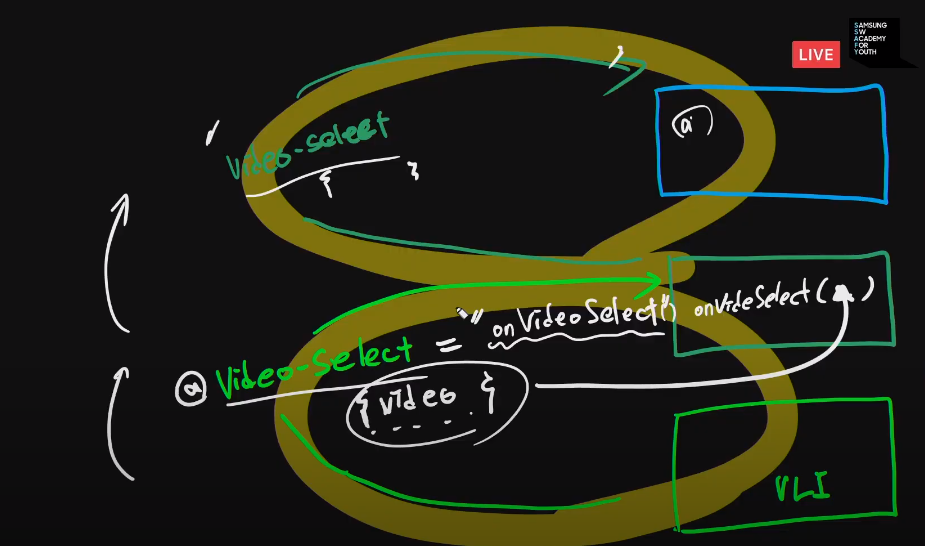 SAMSUNG
SW
ACADEMY
FOR
YOUTH
LIVE
a
Video-select
{ }
"onVideoSelect()
onVideSelect( )
@ Video-Select =
{ video }
VLI